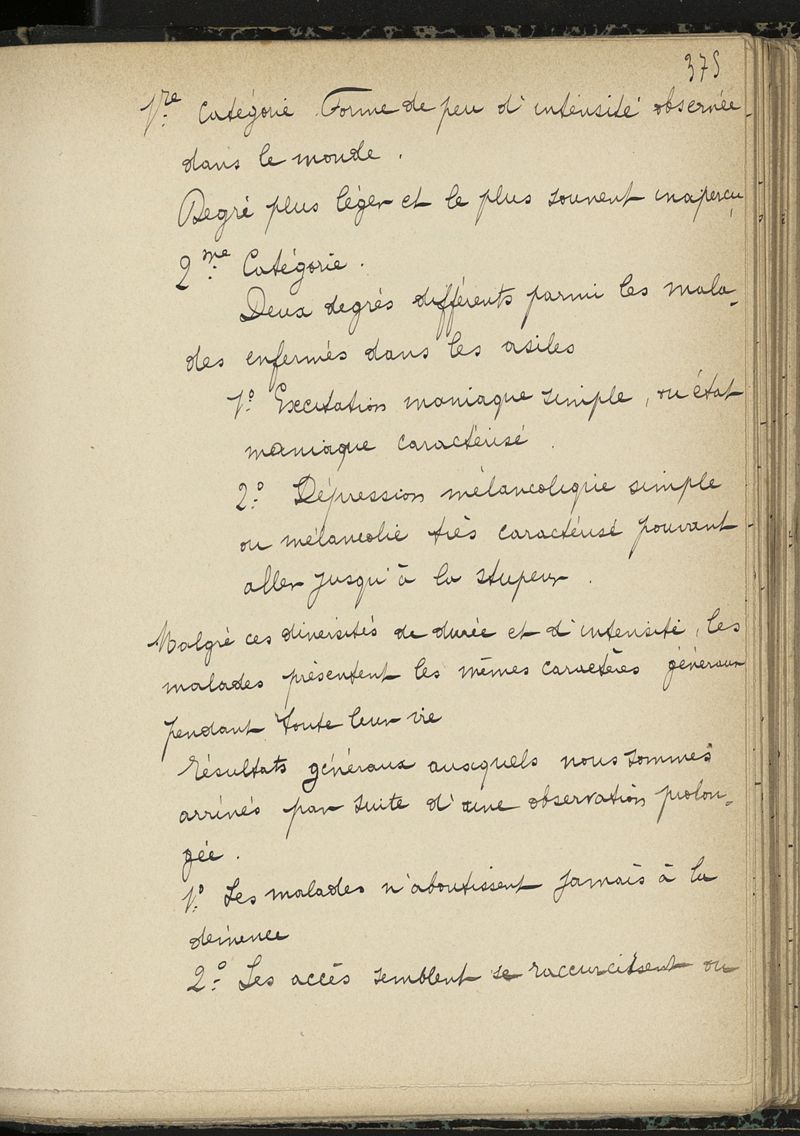 375
1re Catégorie Forme de peu d'intensité observée
dans le monde.
Degré plus léger et le plus souvent inaperçu
2me Catégorie.
Deux degrés différents parmi les mala-
des enfermés dans les asiles
1o Excitation maniaque simple, ou état
maniaque caractérisé.
2o Dépression mélancolique simple
ou mélancolie très caractérisé pouvant
aller jusqu'à la stupeur.
Malgré ces diversités de durée et d'intensité, les
malades présentent les mêmes caractères généraux
pendant toute leur vie
Résultats généraux auxquels nous sommes
arrivés par suite d'une observation prolon-
gée.
1o Les malades n'aboutissent jamais à la
démence
2o Les accès semblent se raccurcissent ou